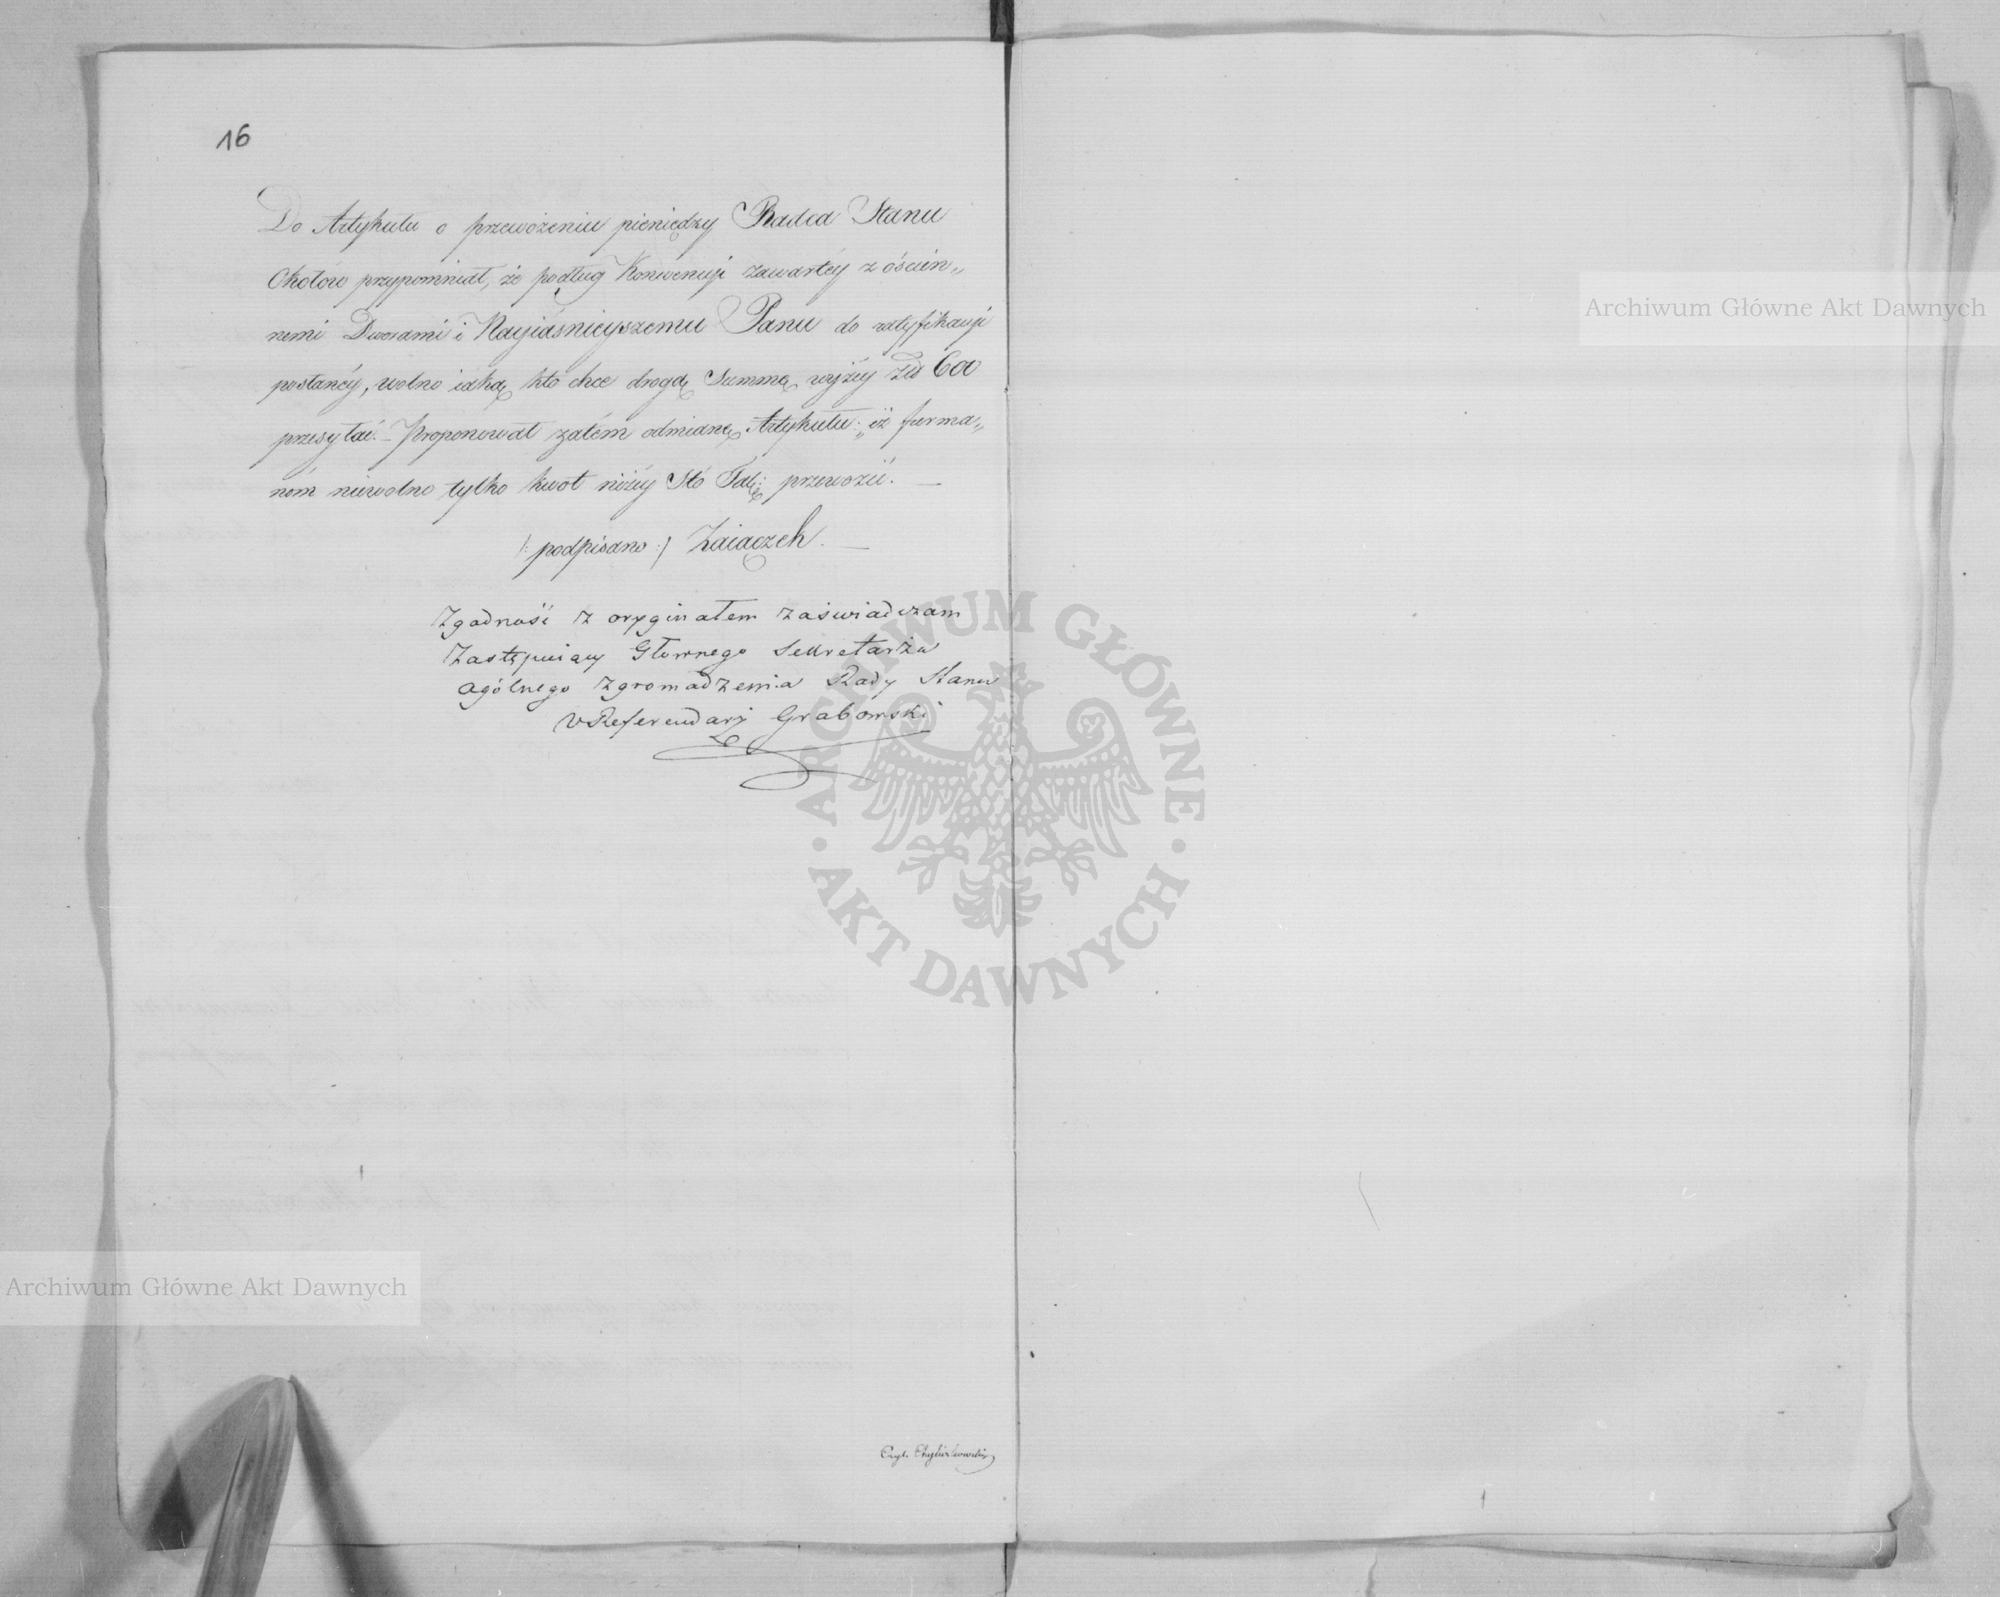 16
Do Artykułu o przewożeniu pieniędzy Radca Stanu
Okołow przypomniał, że podług Konwencyi zawartéy z ościen„
nemi Dworami i Nayiaśnieyszemu Panu do ratyfikacyi
posłanéy, wolno iaką kto chce drogą Summę wyżéy Zł 600
przesyłać. – Proponował zatém odmianę Artykułu: „iż furma„
nóm niewolno tylko kwot niżéy Stó Tal: przewozić. —
/: podpisano :/ Zaiączek. —
Zgodność z oryginałem zaświadczam
Zastępuiący Głównego Sekretarza
Ogólnego Zgromadzenia Rady Stanu
Referendarz Grabowski
Czyt.
Archiwum Główne Akt Dawnych
Archiwum Główne Akt Dawnych
ARCHIWUM GŁÓWNE
AKT DAWNYCH